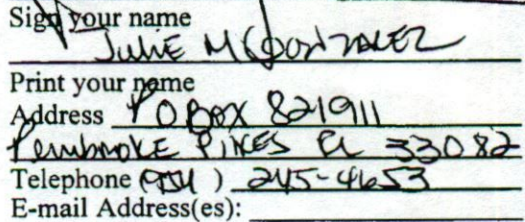 Sign your name
JULIE M GONZALEZ
Print your name
Address PO BOX 821911
PEMBROKE PINES FL 33082
Telephone (954) 245-4653
E-mail Address(es):